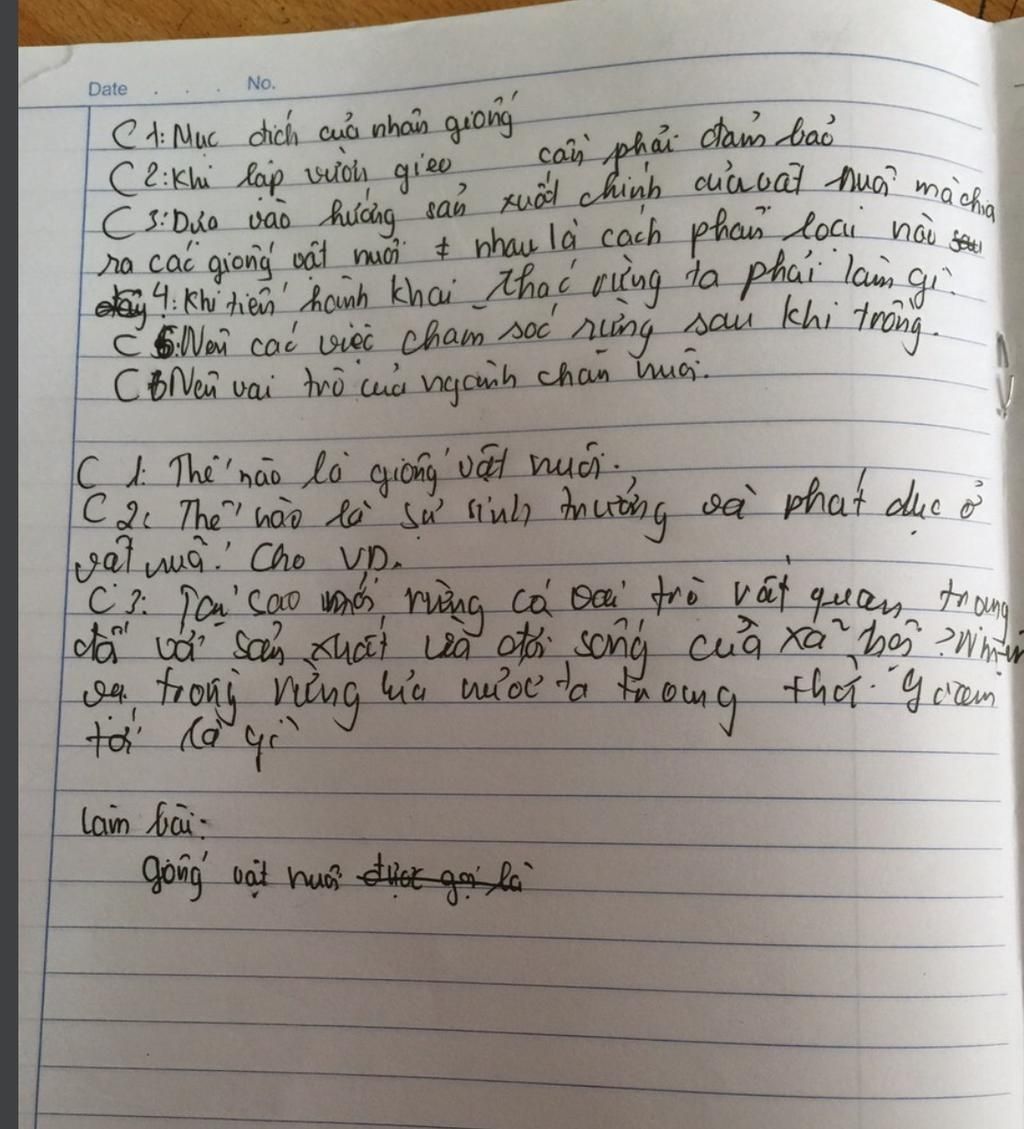 Date . . . No.
C 1: Mục đích của nhân giống
C 2: Khi lập vườn gieo cần phải đảm bảo
C 3: Dựa vào hướng sản xuất chính của vật nuôi mà chia
ra các giống vật nuôi ≠ nhau là cách phân loại nào
4: Khi tiến hành khai thác rừng ta phải làm gì.
C 5: Nêu các việc chăm sóc rừng sau khi trồng.
C 6 Nêu vai trò của ngành chăn nuôi.
C 1: Thế nào là giống vật nuôi.
C 2: Thế nào là sự sinh trưởng và phát dục ở
vật nuôi. Cho VD.
C 3: Tại sao nói rừng có vai trò rất quan trong
đối với sản xuất và đời sống của xã hội? Nhiệm
vụ trồng rừng của nước ta trong thời gian
tới là gì
Làm bài:
Giống vật nuôi được gọi là